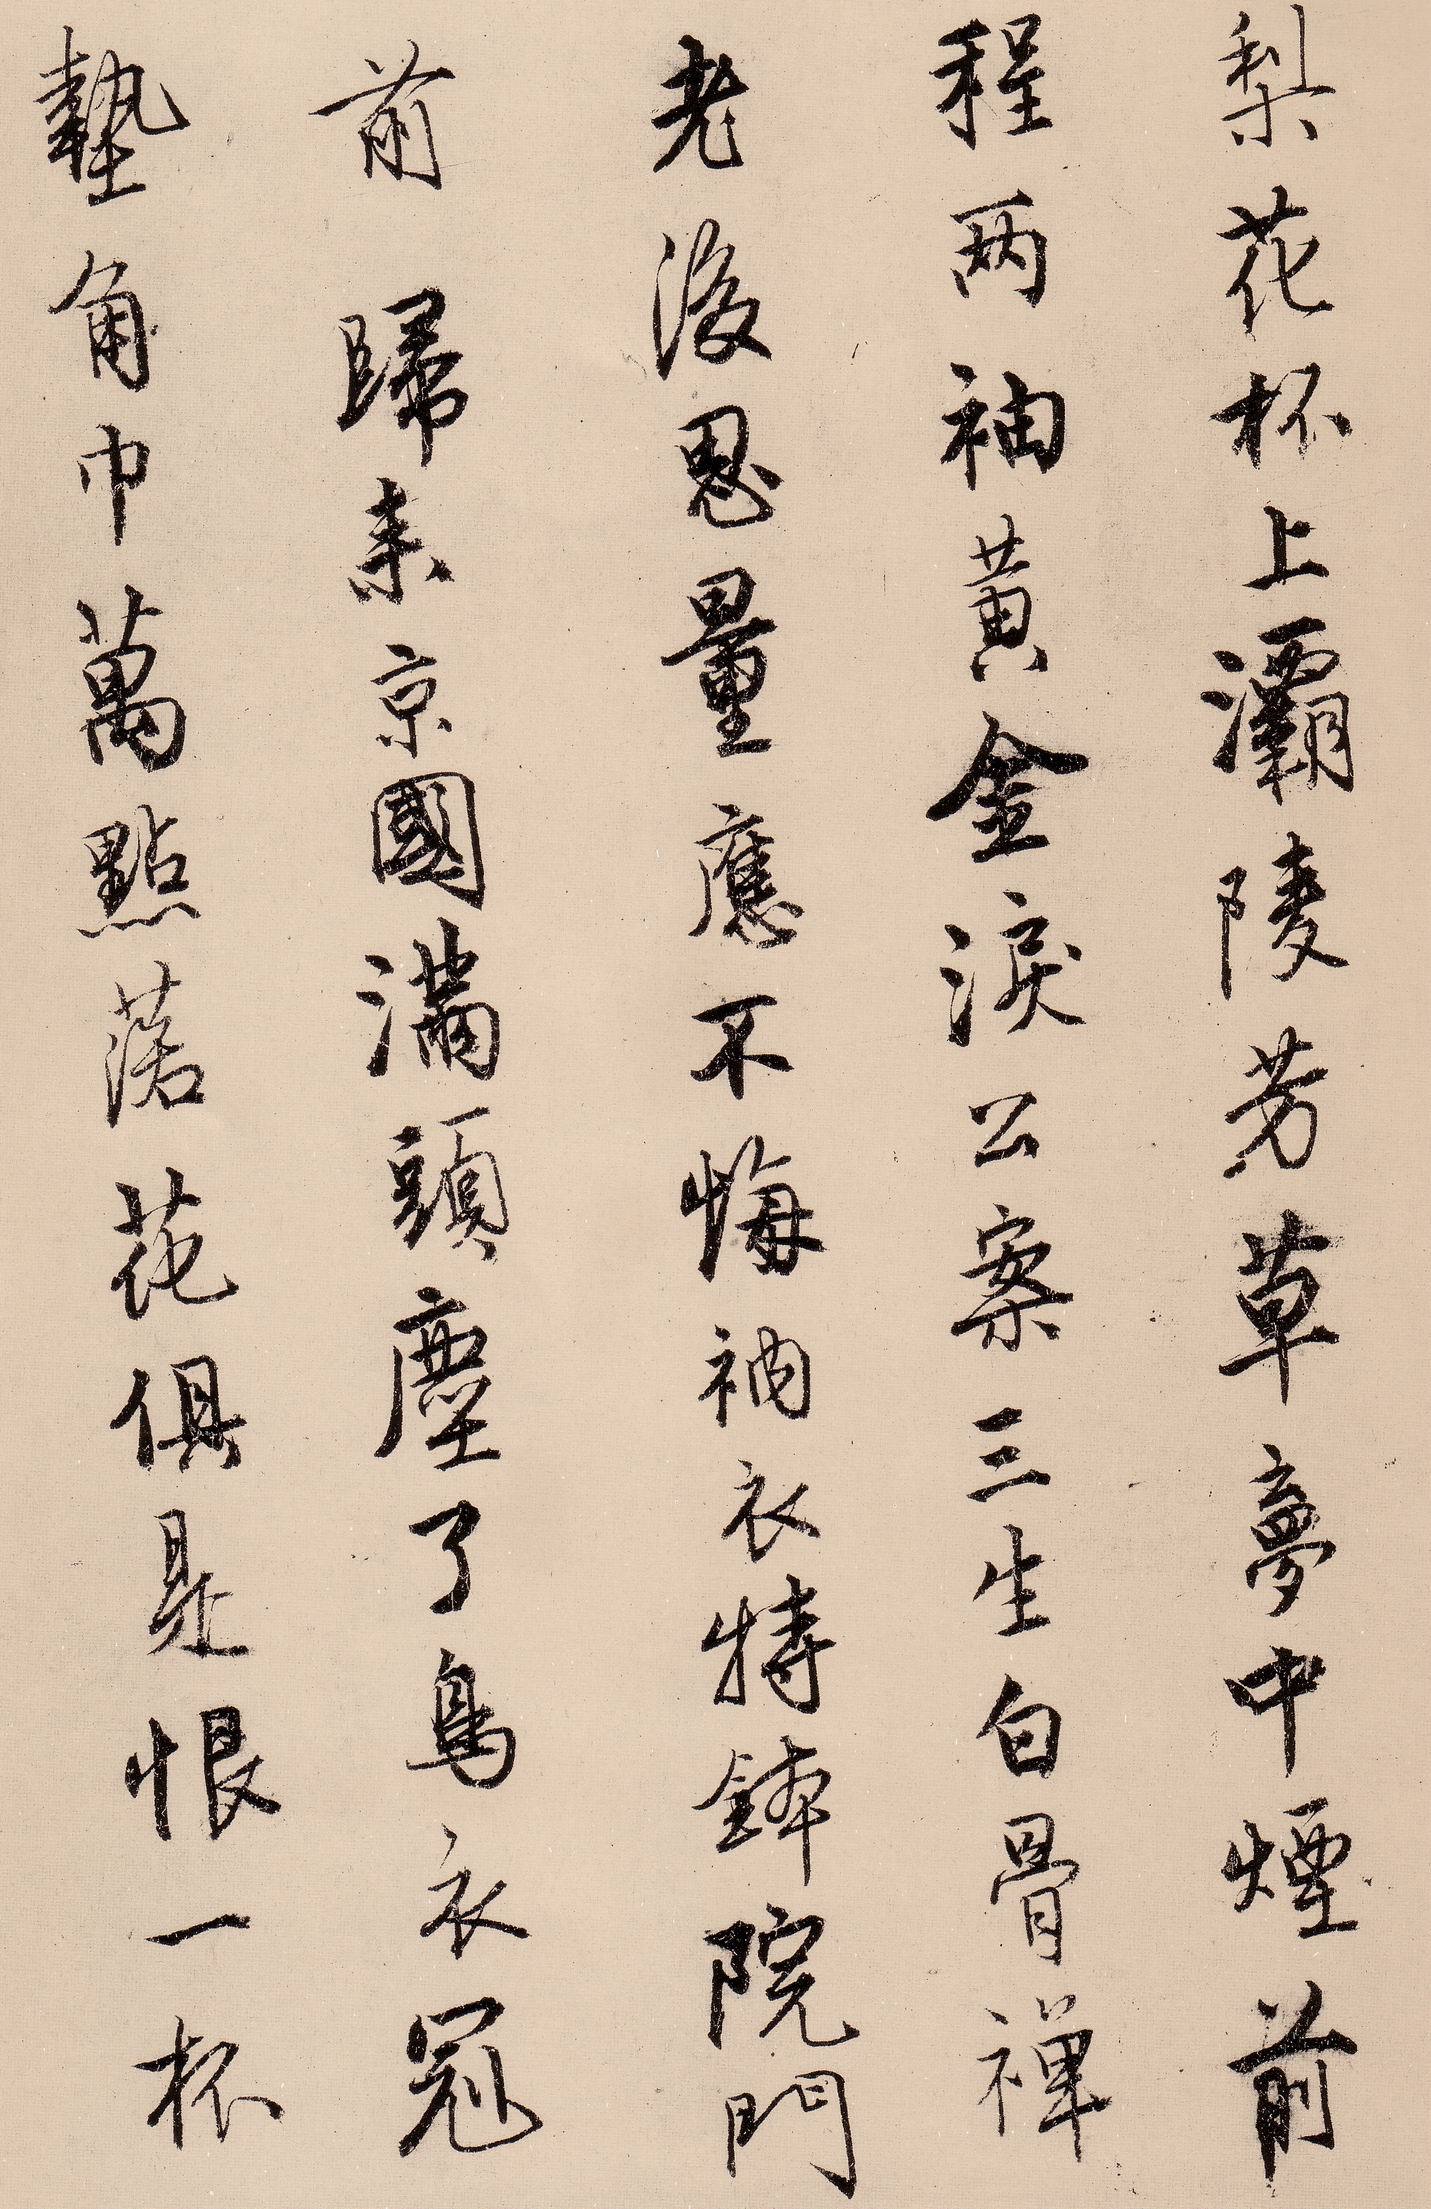 梨花杯上灞陵芳草夢中煙前
程兩袖黃金淚公案三生白骨禪
老後思量應不悔衲衣持鉢院門
前 歸來京國滿頭塵了鳥衣冠
墊角巾萬點落花俱是恨一杯